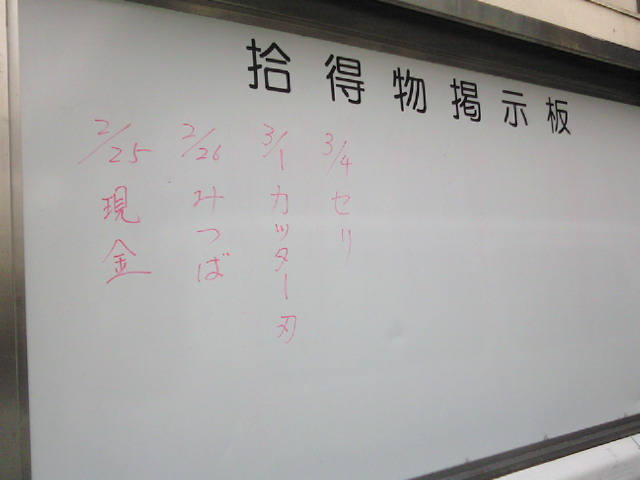 拾得物掲示板
2/25 現金
2/26 みつば
3/1 カッター刃
3/4 セリ